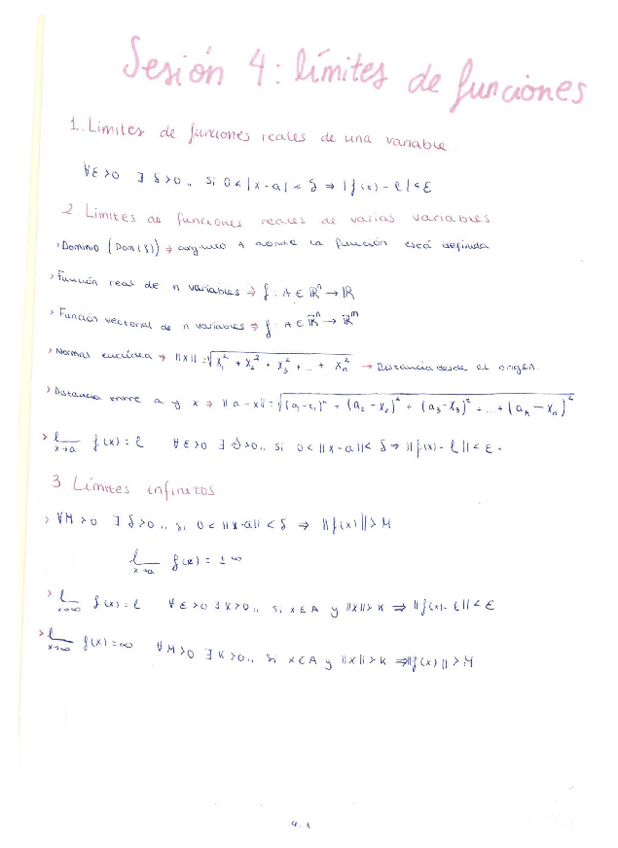 Sesión 4: límites de funciones
1. Límites de funciones reales de una variable.
∀ε>0 ∃ δ>0 .. si 0<|x-a|<δ ⇒ |f(x)-l|<ε
2. Límites de funciones reales de varias variables.
› Dominio (Dom(f)) → conjunto A donde la función está definida
› Función real de n variables → f: A ∈ ℝⁿ → ℝ
› Función vectorial de n variables → f: A ∈ ℝⁿ → ℝᵐ
› Normal euclídea → ||x|| = √(x₁² + x₂² + x₃² + ... + xₙ²) → Distancia desde el origen.
› Distancia entre a y x → ||a-x|| = √((a₁-x₁)² + (a₂-x₂)² + (a₃-x₃)² + ... + (aₙ-xₙ)²)
› l x→a f(x)=l ∀ε>0 ∃ δ>0.. si 0<||x-a||<δ ⇒ ||f(x)-l||<ε.
3 Límites infinitos
› ∀M>0 ∃ δ>0.. si 0<||x-a||<δ ⇒ ||f(x)||>M
l x→a f(x)=±∞
› l x→∞ f(x)=l ∀ε>0 ∃K>0.. si x∈A y ||x||>K ⇒ ||f(x)-l||<ε
› l x→∞ f(x)=∞ ∀M>0 ∃K>0.. si x∈A y ||x||>K ⇒ ||f(x)||>M
4.1